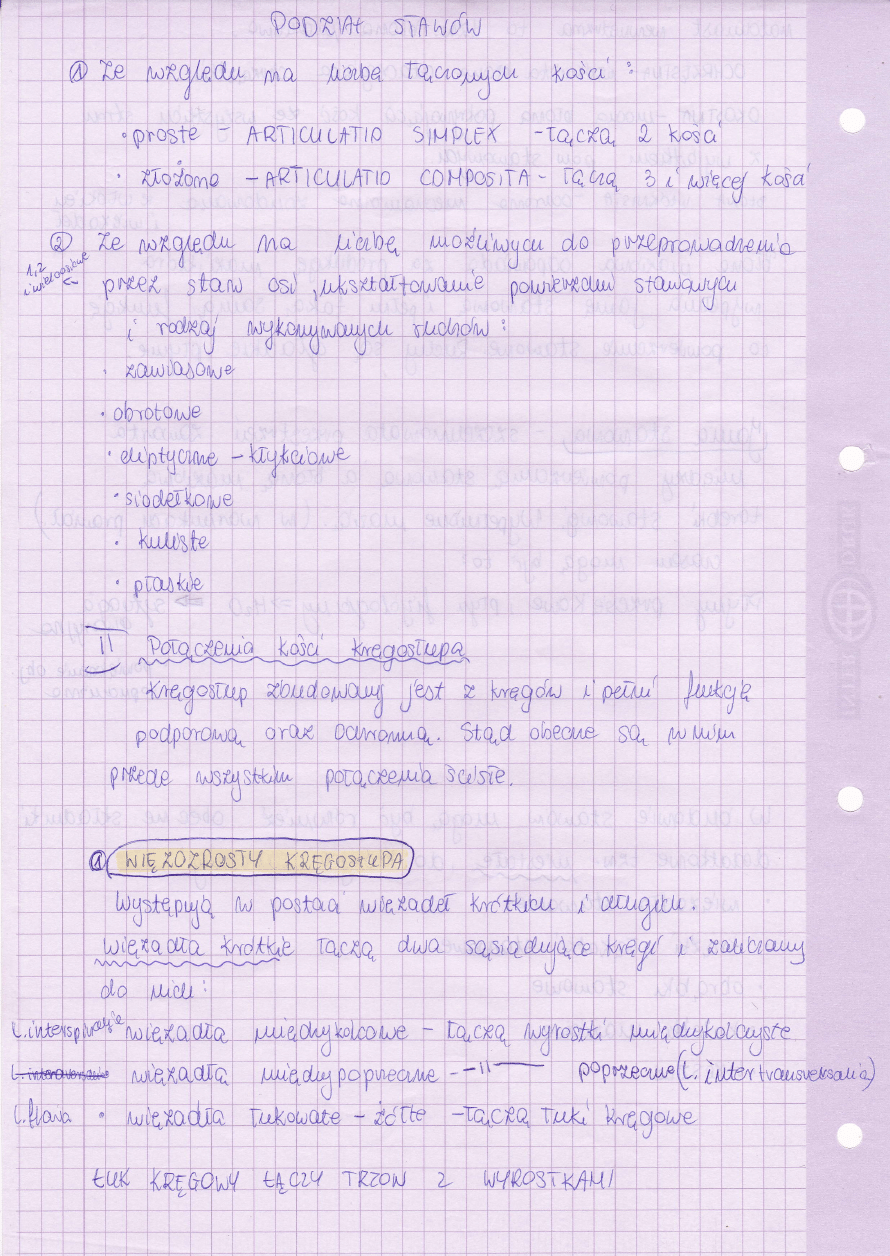 PODZIAŁ STAWÓW
① Ze względu na liczbę łączonych kości :
• proste – ARTICULATIO SIMPLEX – łączą 2 kości
• złożone – ARTICULATIO COMPOSITA – łączą 3 i więcej kości
② Ze względu na liczbę możliwych do przeprowadzenia
1,2 i wieloosiowe ←
przez staw osi, ukształtowanie powierzchni stawowych
i rodzaj wykonywanych ruchów :
• zawiasowe
• obrotowe
• eliptyczne – kłykciowe
• siodełkowe
• kuliste
• płaskie
II Połączenia kości kręgosłupa
Kręgosłup zbudowany jest z kręgów i pełni funkcję
podporową oraz ochronną. Stąd obecne są w nim
przede wszystkim połączenia ścisłe.
① WIĘZOZROSTY KRĘGOSŁUPA
Występują w postaci więzadeł krótkich i długich.
Więzadła krótkie łączą dwa sąsiadujące kręgi i zaliczamy
do nich :
więzadła międzykolcowe – łączą wyrostki międzykolczyste
więzadła międzypoprzeczne – –||– poprzeczne (l. intertransversalia)
l. flava • więzadła łukowate – żółte – łączą łuki kręgowe
ŁUK KRĘGOWY ŁĄCZY TRZON Z WYROSTKAMI